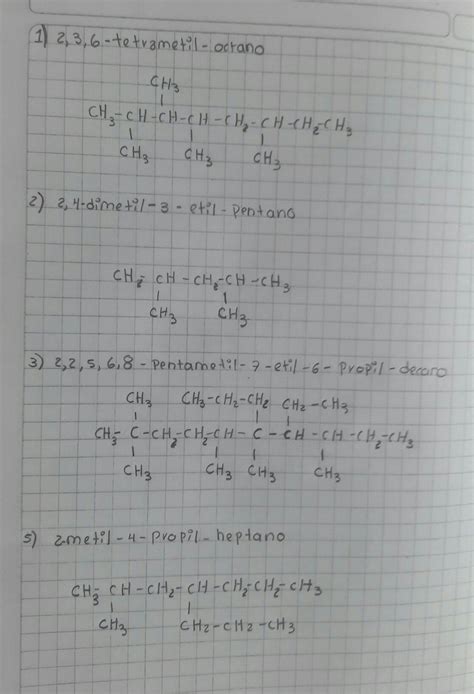 1) 2,3,6-tetrametil-octano
CH3
CH3-CH-CH-CH-CH2-CH-CH2-CH3
CH3 CH3 CH3
2) 2,4-dimetil-3-etil-pentano
CH3-CH-CH2-CH-CH3
CH3 CH3
3) 2,2,5,6,8-pentametil-7-etil-6-propil-decano
CH3 CH3-CH2-CH2 CH2-CH3
CH3-C-CH2-CH2-CH-C-CH-CH-CH2-CH3
CH3 CH3 CH3 CH3
5) 2-metil-4-propil-heptano
CH3-CH-CH2-CH-CH2-CH2-CH3
CH3 CH2-CH2-CH3